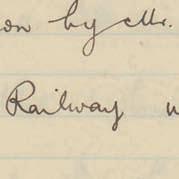 on by Mr.
Railway